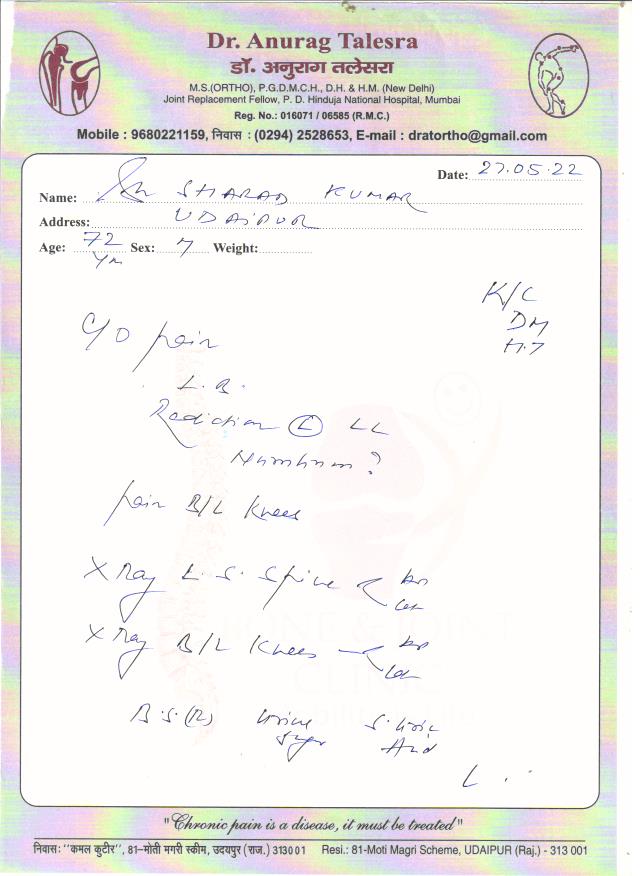 Dr. Anurag Talesra
डॉ. अनुराग तलेसरा
M.S.(ORTHO), P.G.D.M.C.H., D.H. & H.M. (New Delhi)
Joint Replacement Fellow, P. D. Hinduja National Hospital, Mumbai
Reg. No.: 016071 / 06585 (R.M.C.)
Mobile : 9680221159, निवास : (0294) 2528653, E-mail : dratortho@gmail.com
Date: 27.05.22
Name: SHARAD KUMAR
Address: UDAIPUR
Age: 72 Yrs Sex: Weight:
K/C
DM
H.T
C/O pain
L.B.
Radiation (L) LL
Numbness?
pain B/L Knees
X Ray L. S. Spine < AP Lat
X Ray B/L Knees < AP Lat
B.S.(R) Urine Sugar S. Uric Acid
BONE & JOINT
CLINIC
"Chronic pain is a disease, it must be treated"
निवास: "कमल कुटीर", 81-मोती मगरी स्कीम, उदयपुर (राज.) 313001 Resi.: 81-Moti Magri Scheme, UDAIPUR (Raj.) - 313 001